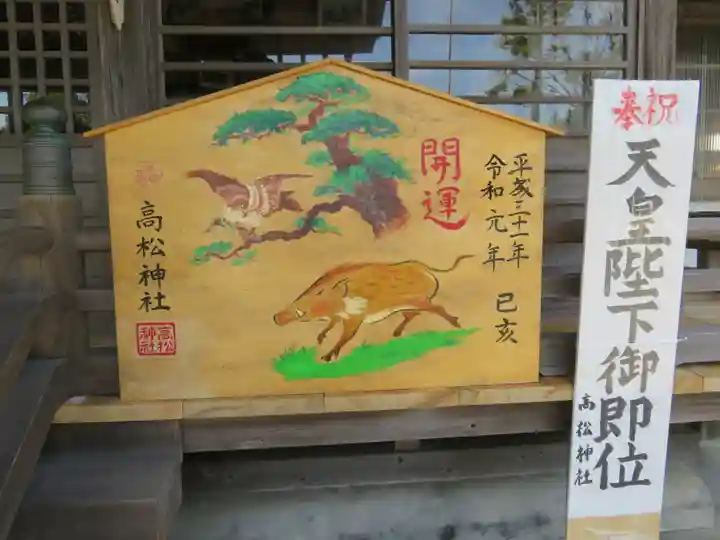 開運
平成三十一年
令和元年
己亥
高松神社
高松
神社
奉祝
天皇陛下御即位
高松神社